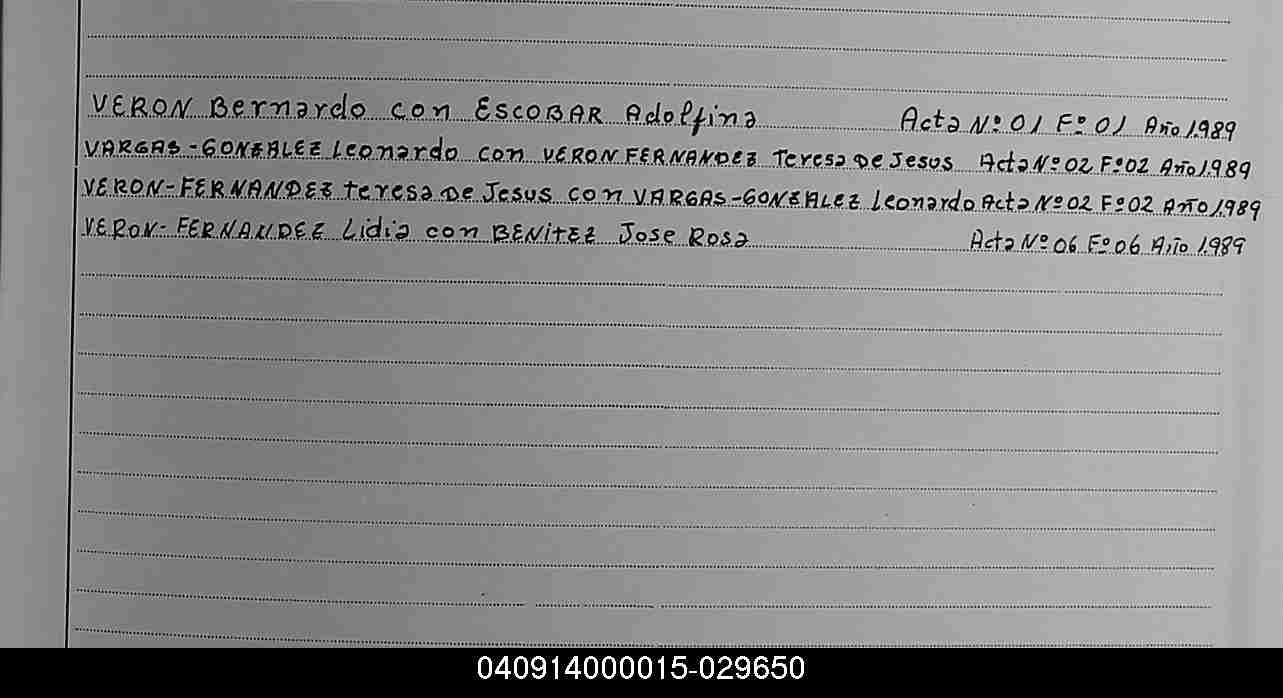 VERON Bernardo con ESCOBAR Adolfina Acta Nº 01 Fº 01 Año 1.989
VARGAS-GONZALEZ Leonardo con VERON FERNANDEZ Teresa De Jesus Acta Nº 02 Fº 02 Año 1.989
VERON-FERNANDEZ teresa De Jesus con VARGAS-GONZALEZ Leonardo Acta Nº 02 Fº 02 Año 1.989
VERON-FERNANDEZ Lidia con BENitEZ Jose Rosa Acta Nº 06 Fº 06 Año 1.989
040914000015-029650